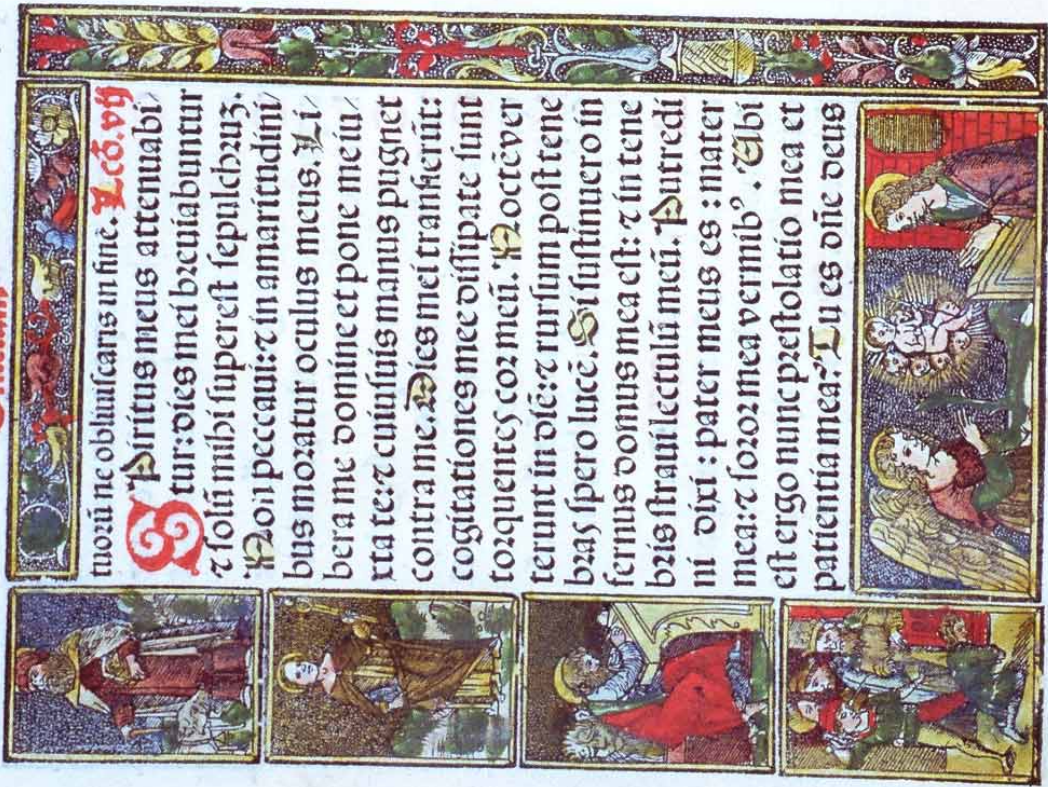 tuorū ne obliuiscaris in finē. Lcō. vij
SPiritus meus attenuabi/
tur: dies mei breuiabuntur
⁊ solū mihi superest sepulchruz.
Non peccaui: ⁊ in amaritudini/
bus moratur oculus meus. Li/
bera me domine et pone me iu/
xta te: ⁊ cuiusuis manus pugnet
contra me. Dies mei transierūt:
cogitationes mee dissipate sunt
torquentes cor meū. Noctē ver
terunt in diē: ⁊ rursum post tene
bras spero lucē. Si sustinuero in
fernus domus mea est: ⁊ in tene
bris straui lectulū meū. Putredi
ni dixi : pater meus es : mater
mea: ⁊ soror mea vermibꝰ. Ubi
est ergo nunc prestolatio mea et
patientia mea? Tu es dñe deus